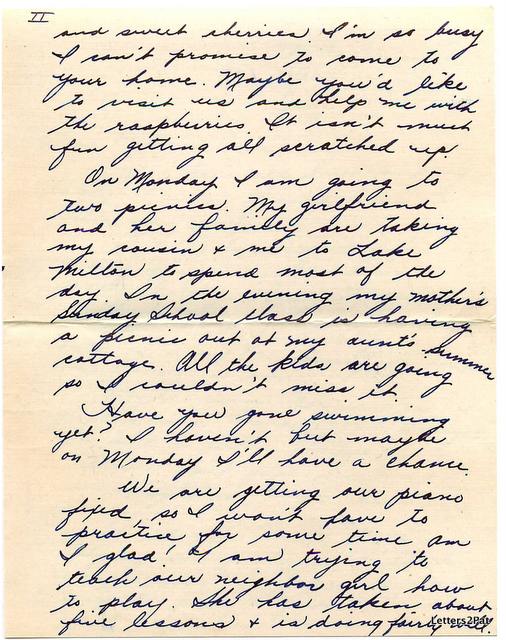 II
and sweet cherries. I'm so busy
I can't promise to come to
your home. Maybe you'd like
to visit us and help me with
the raspberries. It isn't much
fun getting all scratched up.
On Monday I am going to
two picnics. My girlfriend
and her family are taking
my cousin & me to Lake
Milton to spend most of the
day. In the evening my mother's
Sunday School class is having
a picnic out at my aunt's summer
cottage. All the kids are going
so I couldn't miss it.
Have you gone swimming
yet? I haven't but maybe
on Monday I'll have a chance.
We are getting our piano
fixed, so I won't have to
practice for some time am
I glad! I am trying to
teach our neighbor girl how
to play. She has taken about
five lessons & is doing fairly well.
Letters2Pat